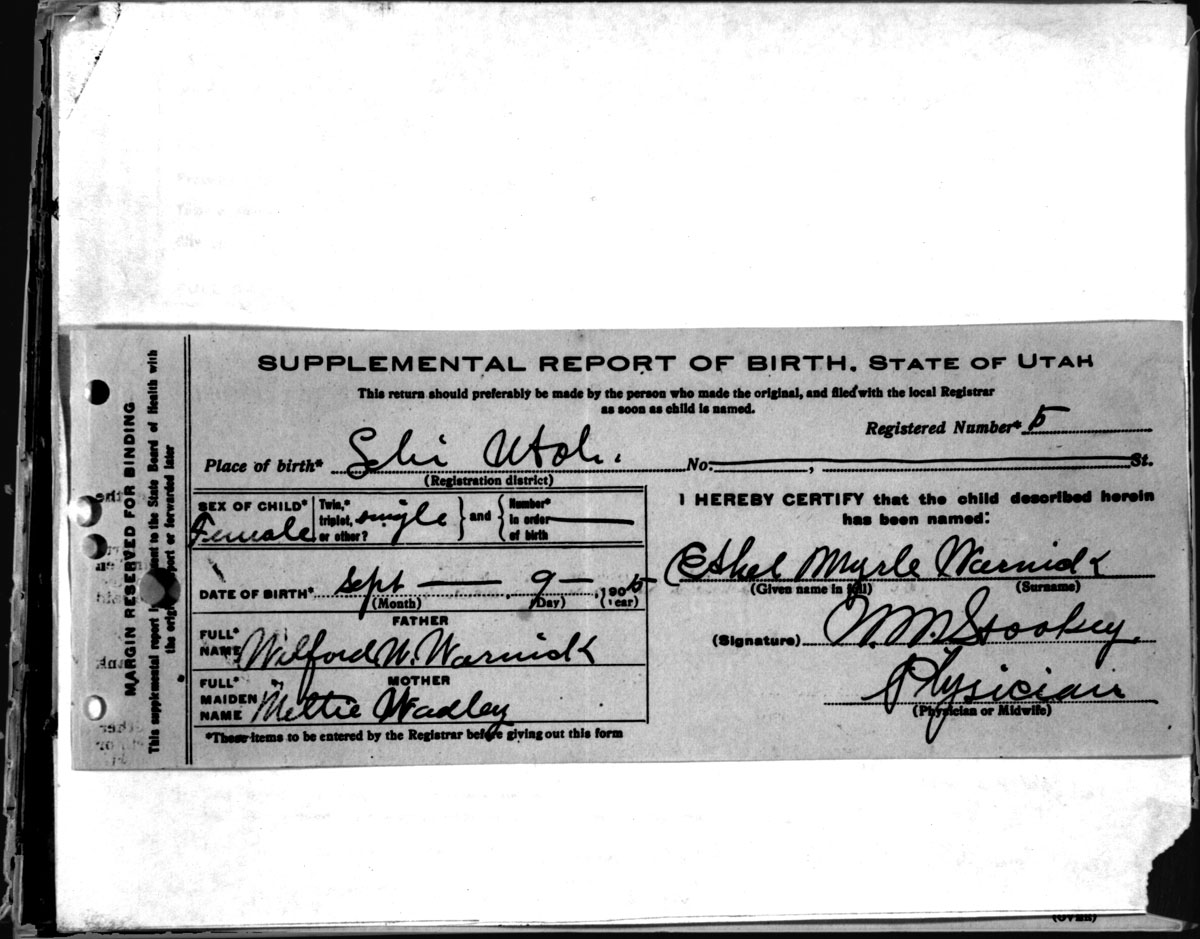 SUPPLEMENTAL REPORT OF BIRTH, STATE OF UTAH
This return should preferably be made by the person who made the original, and filed with the local Registrar
as soon as child is named.
Registered Number* 5
Place of birth* Utah. No. , St.
(Registration district)
SEX OF CHILD* Female
Twin,* triplet, or other? single
and
Number* in order of birth
DATE OF BIRTH* Sept 9 , 1905
(Month) (Day) (Year)
FATHER
FULL* NAME Wilford W. Warnick
MOTHER
FULL* MAIDEN NAME Mettie Wadley
*These items to be entered by the Registrar before giving out this form
I HEREBY CERTIFY that the child described herein
has been named:
Ethel Myrle Warnick
(Given name in full) (Surname)
(Signature) Stookey
Physician
(Physician or Midwife)
MARGIN RESERVED FOR BINDING
(OVER)